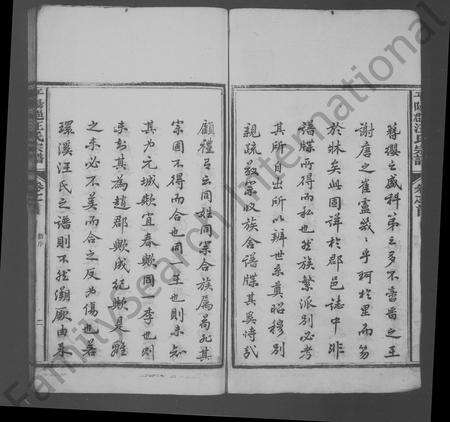 平陽郡汪氏宗譜
卷之首
簪纓之盛科第之多不啻晉之王
謝唐之崔盧歟乎珂於里而笏
於牀矣與國詳於郡邑誌中非
譜牒所得而私也然族繁派別必考
其所自出所以辨世系奠昭穆別
親疏敦宗收族舍譜牒其奚恃哉
顧禮曰云同姓同宗合族屬苟死其
宗固不得而合也同一王也則未知
其為元城歟宜春歟同一李也則
未知其為趙郡歟咸紀歟是雖
之來必不美而合之反為傷也若
環溪汪氏之譜則不然溯厥由來
平陽郡汪氏宗譜
卷之首
舊序
二
FamilySearch International